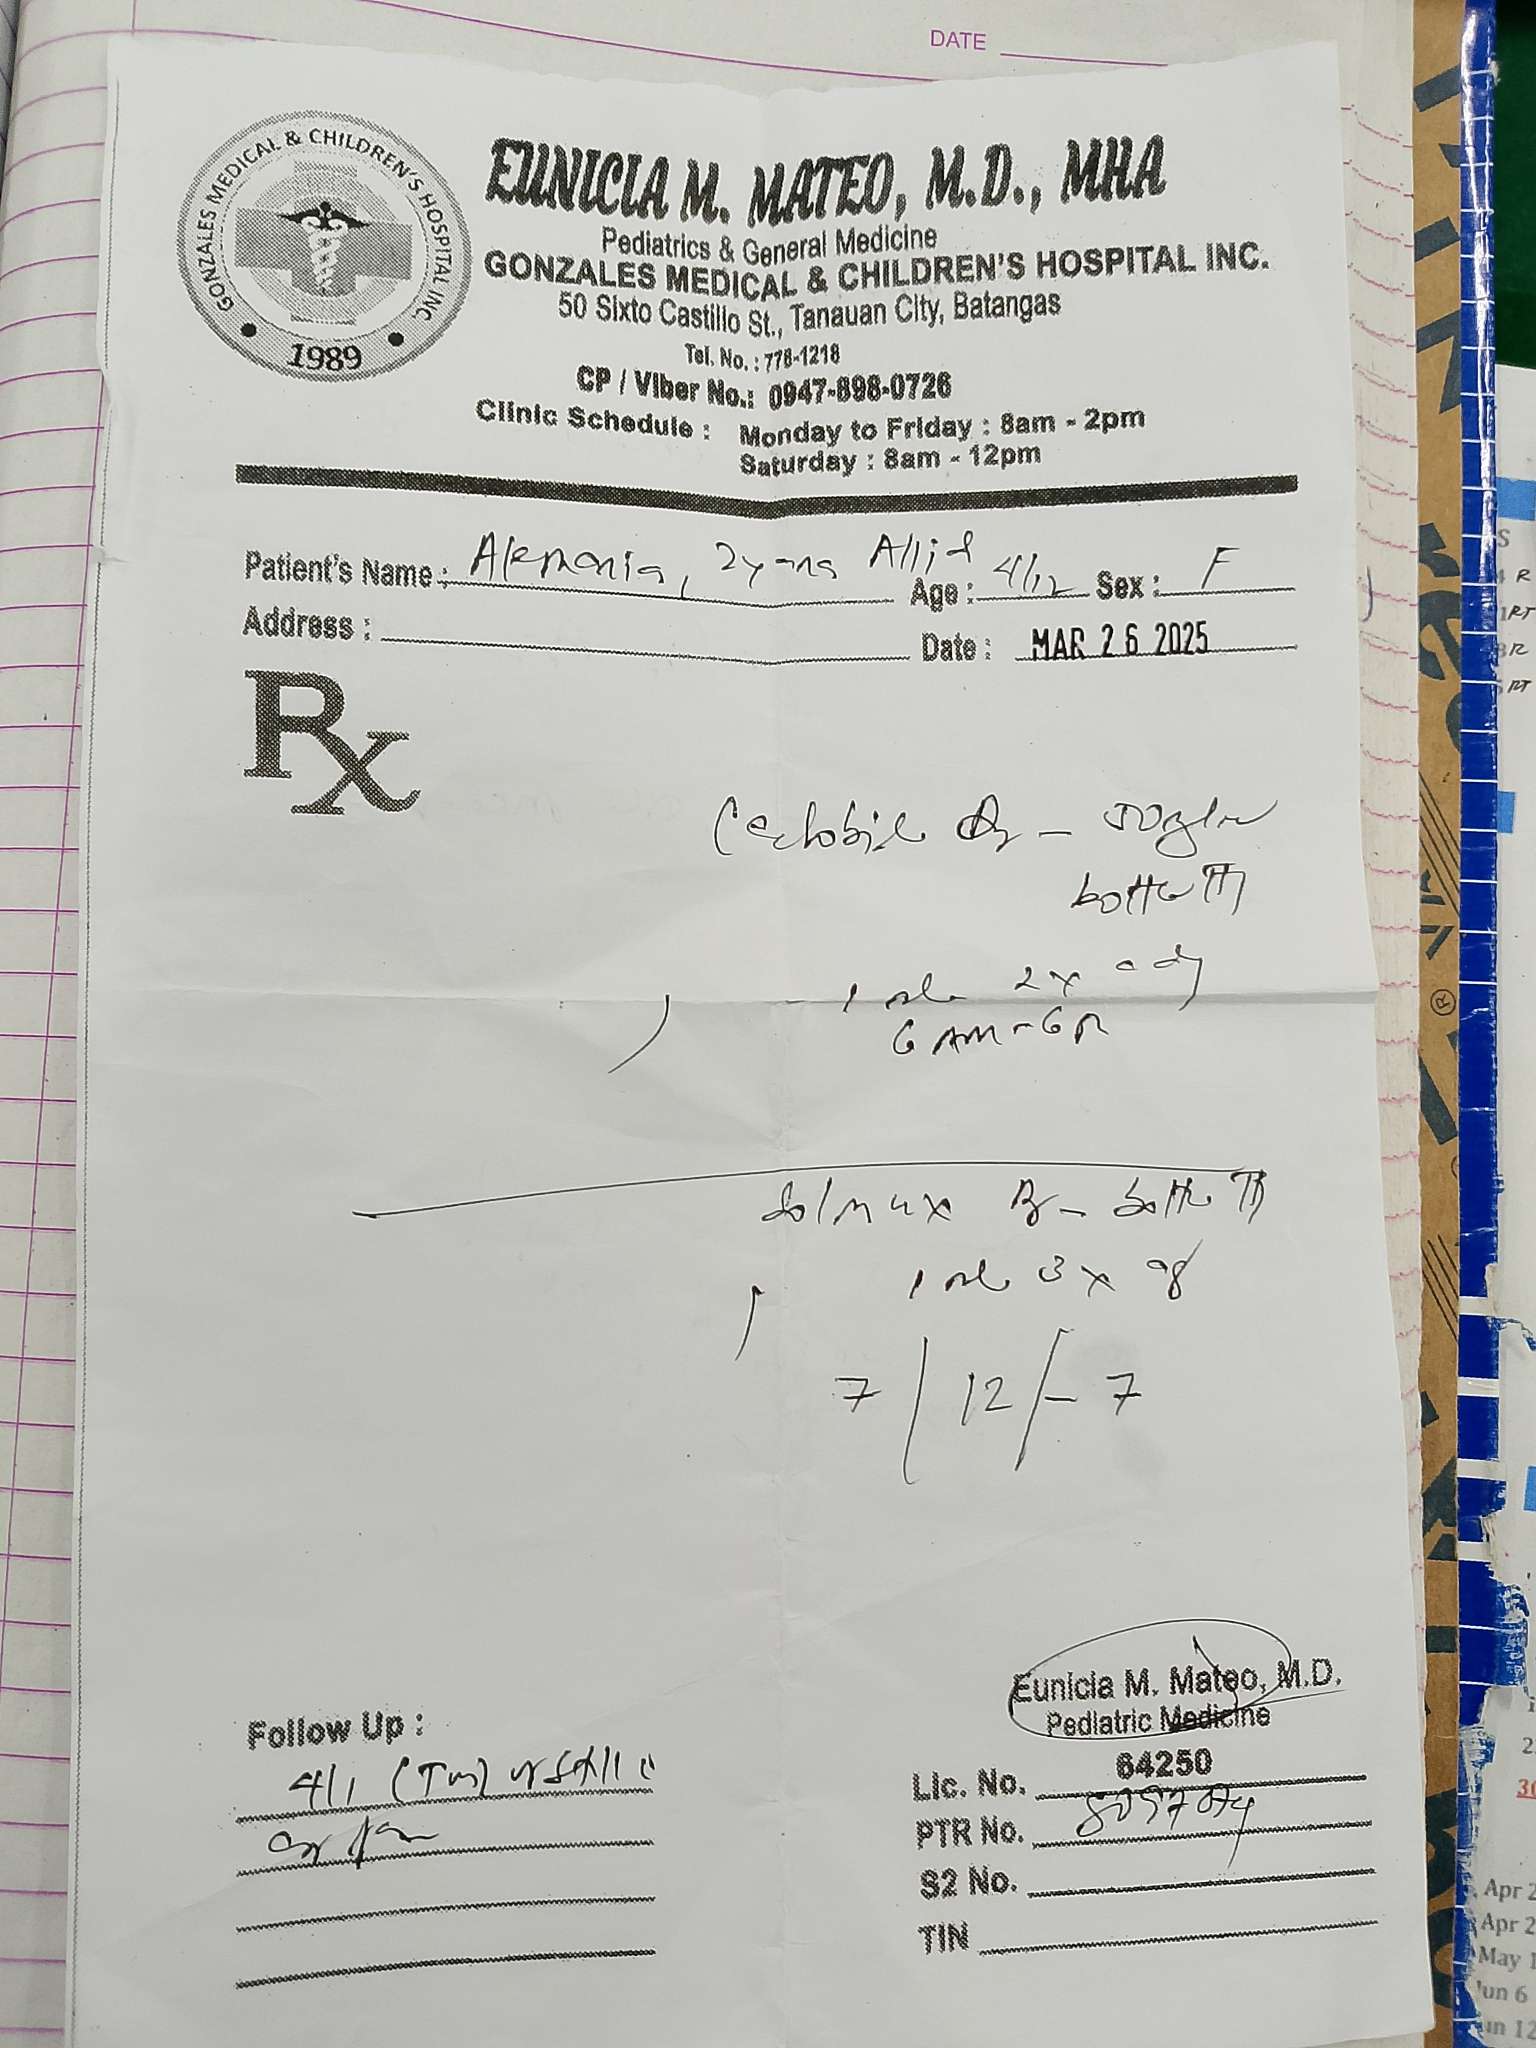 DATE
GONZALES MEDICAL & CHILDREN'S HOSPITAL INC
1989
EUNICIA M. MATEO, M.D., MHA
Pediatrics & General Medicine
GONZALES MEDICAL & CHILDREN'S HOSPITAL INC.
50 Sixto Castillo St., Tanauan City, Batangas
Tel. No. : 778-1218
CP / Viber No.: 0947-898-0726
Clinic Schedule : Monday to Friday : 8am - 2pm
Saturday : 8am - 12pm
Patient's Name : Alemania, Age : 4/12 Sex : F
Address : Date : MAR 26 2025
Rx
bottle
1 2x
6 AM - 6 P
Solmux bottle
1 3x
7 / 12 / - 7
Eunicia M. Mateo, M.D.
Pediatric Medicine
Follow Up :
4/1
Lic. No. 64250
PTR No.
S2 No.
TIN
Apr 2
Apr 2
May 1
Jun 6
Jun 12